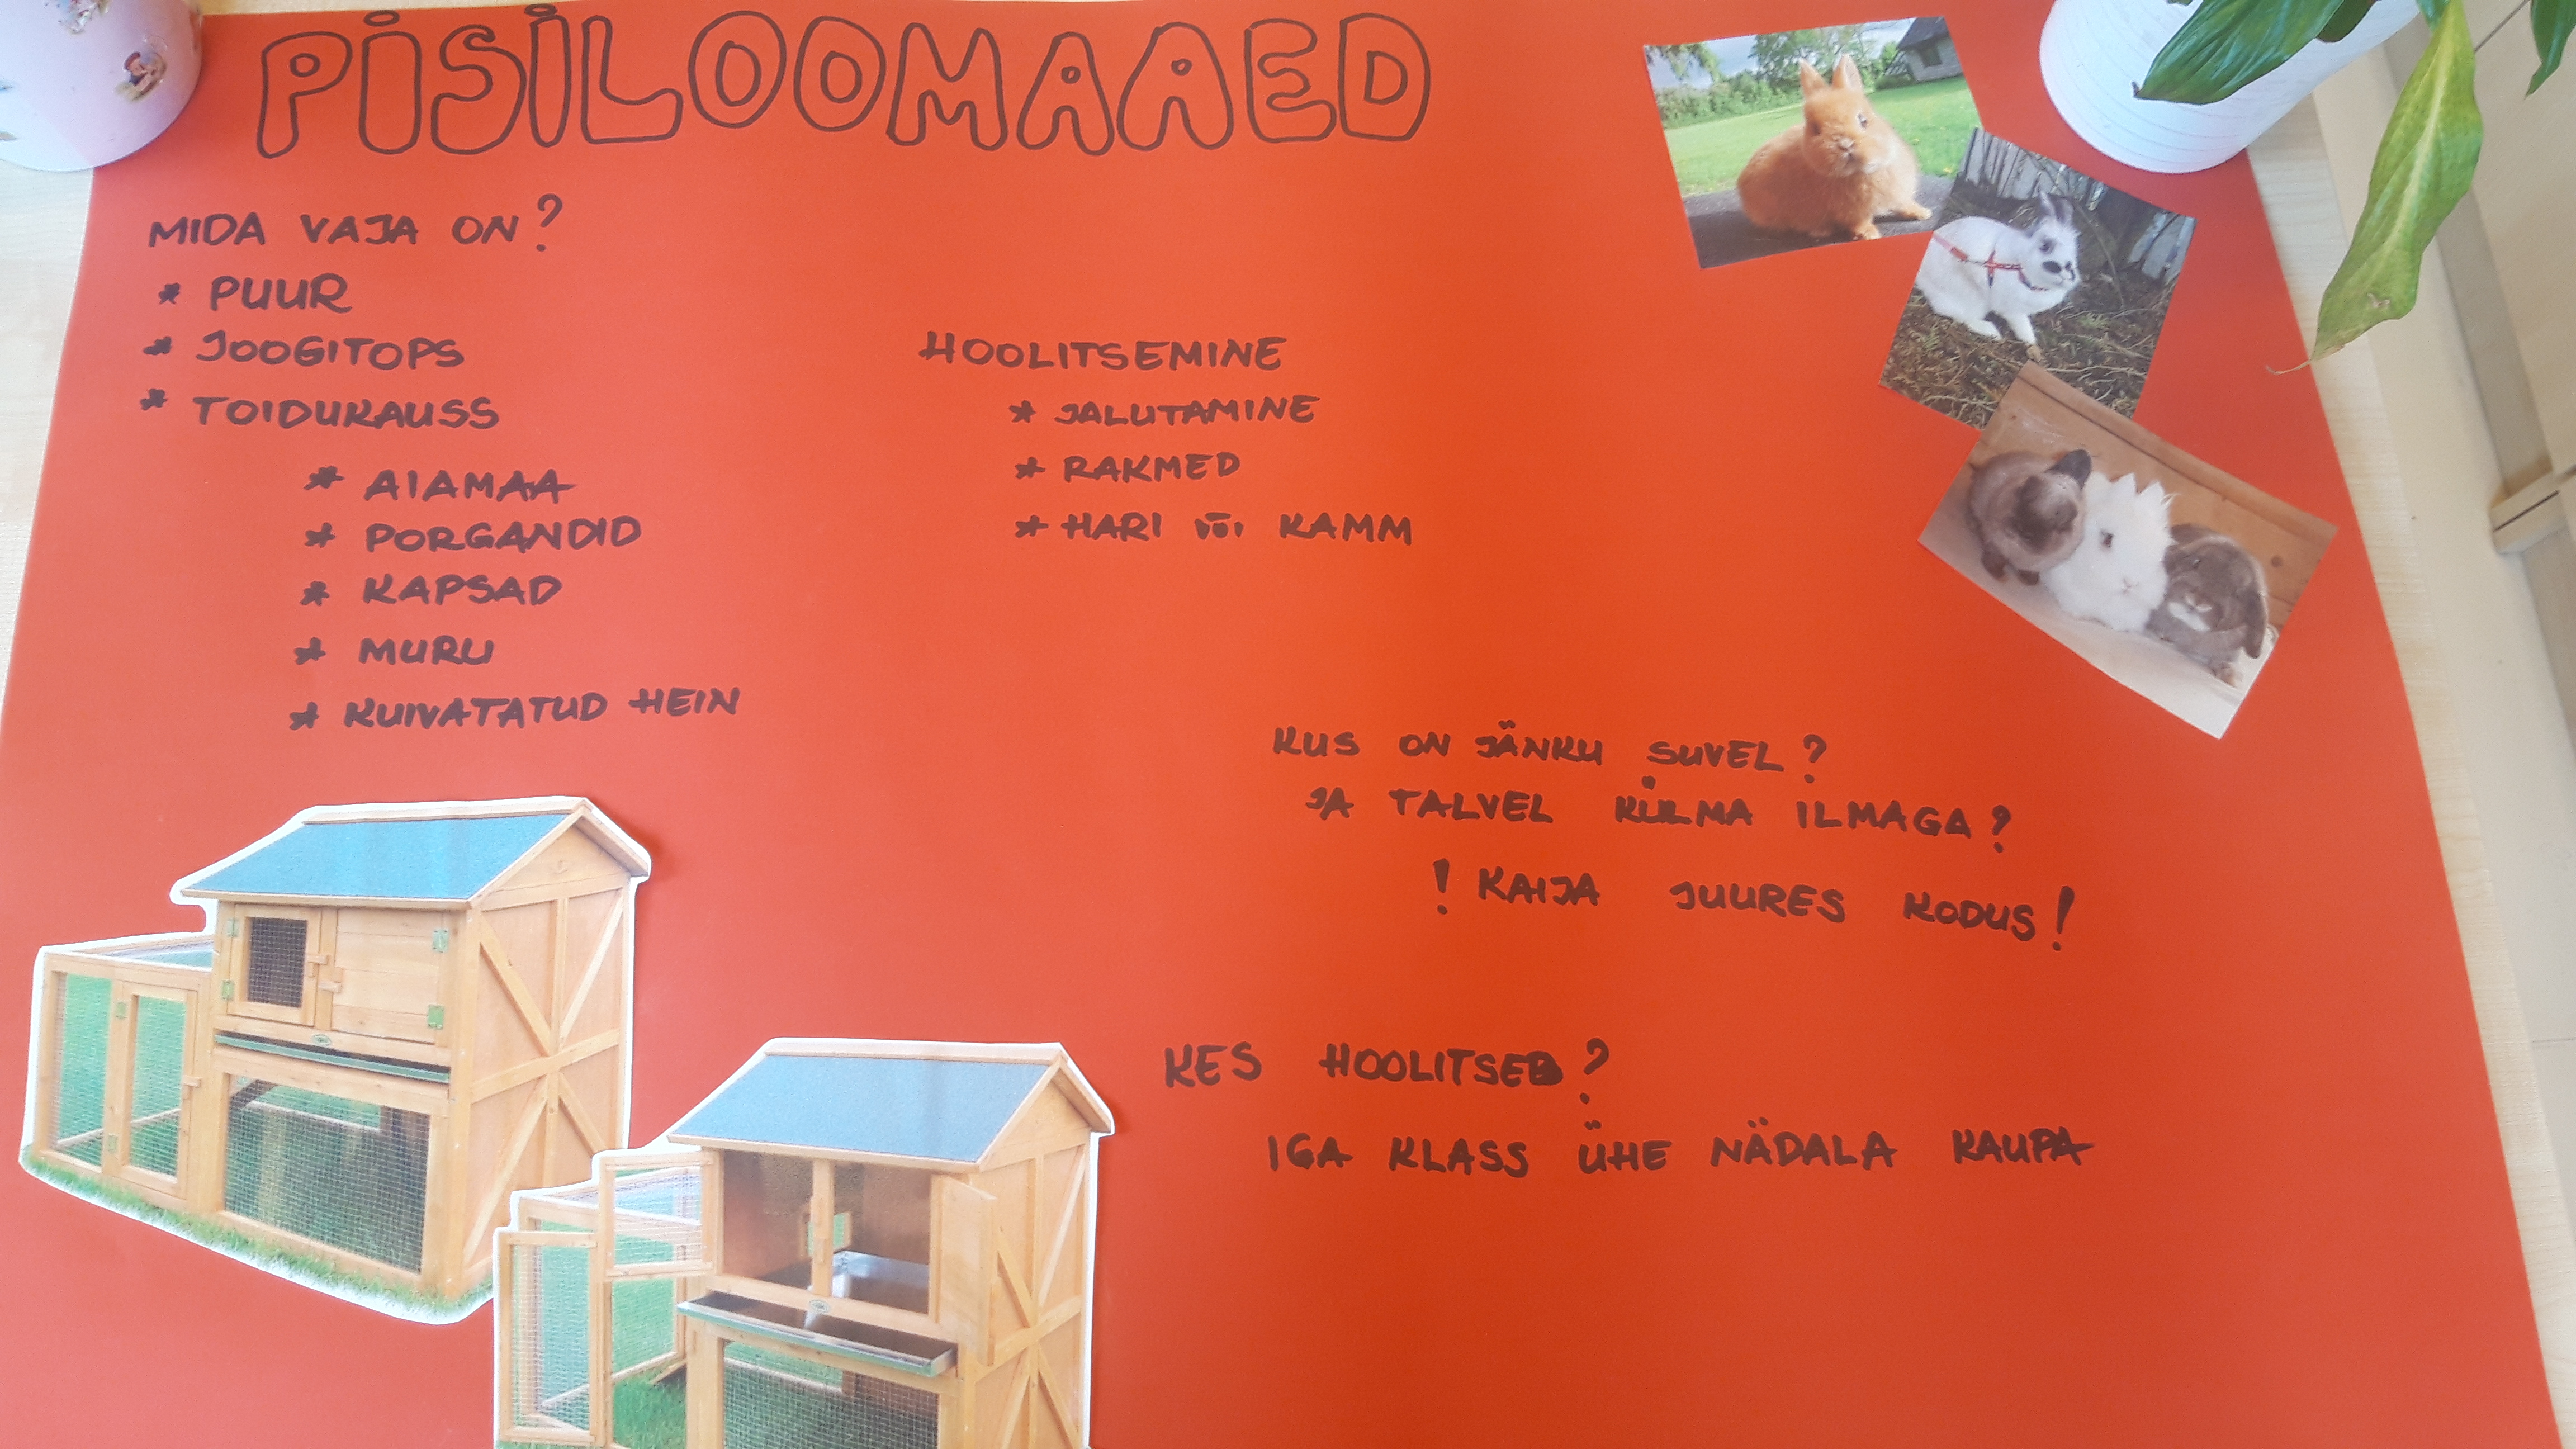 PISILOOMAAED
MIDA VAJA ON?
* PUUR
* JOOGITOPS
* TOIDUKAUSS
* AIAMAA
* PORGANDID
* KAPSAD
* MURU
* KUIVATATUD HEIN
HOOLITSEMINE
* JALUTAMINE
* RAKMED
* HARI või KAMM
KUS ON JÄNKU SUVEL?
JA TALVEL KÜLMA ILMAGA?
! KAIJA JUURES KODUS!
KES HOOLITSEB?
IGA KLASS ÜHE NÄDALA KAUPA